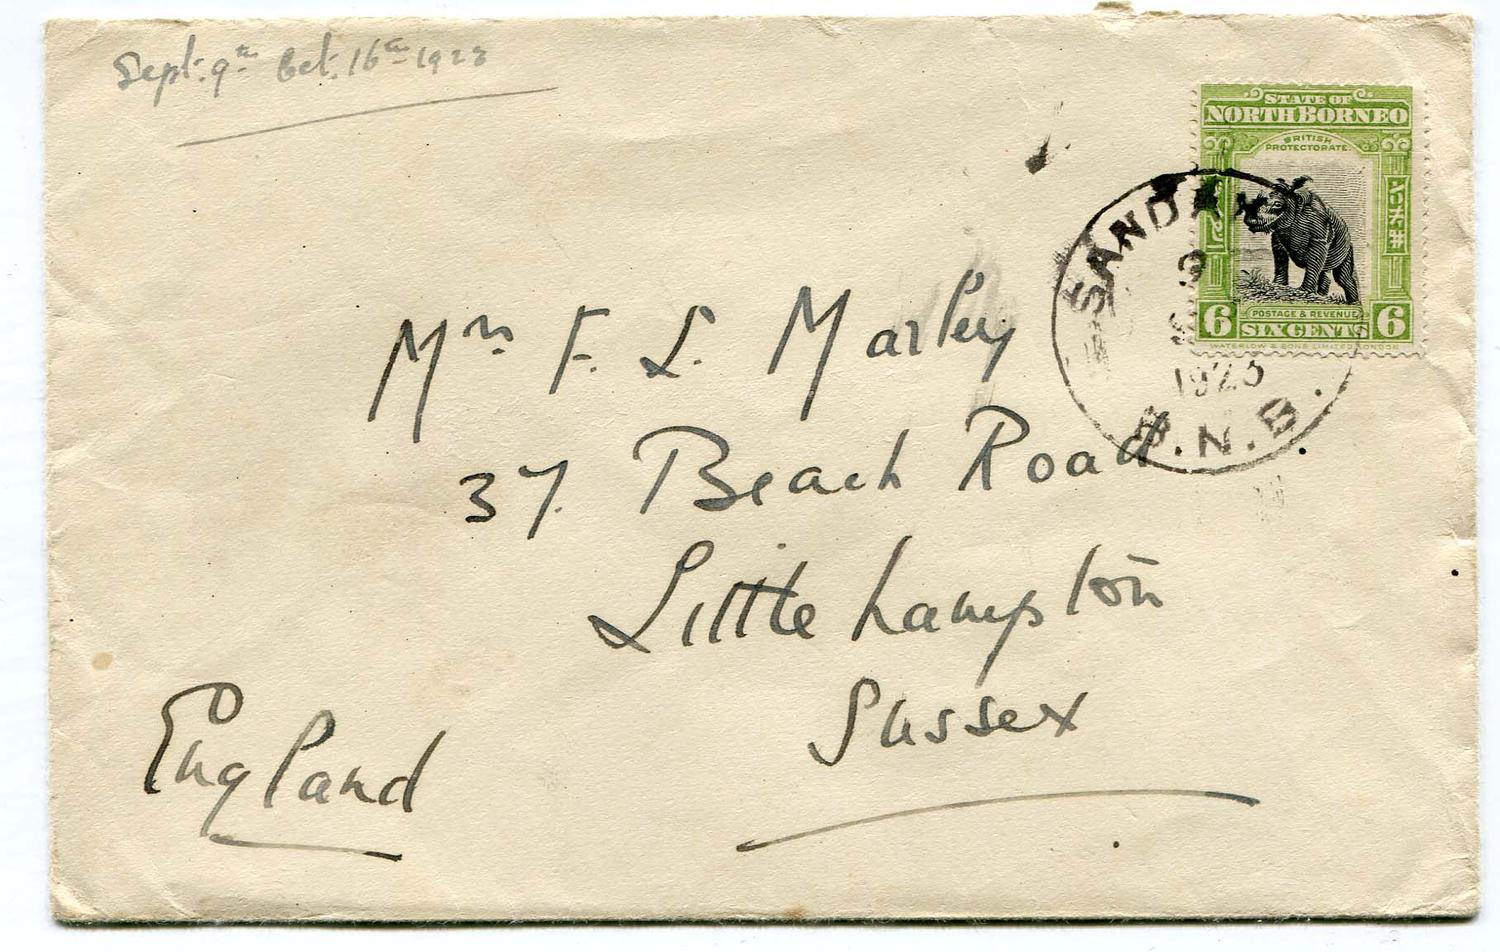 Sept. 9th Oct. 16th 1923
STATE OF
NORTH BORNEO
BRITISH
PROTECTORATE
POSTAGE & REVENUE
6 SIX CENTS 6
WATERLOW & SONS LIMITED LONDON
SANDAKAN
9
1923
B.N.B.
Mrs F. L. Marley
37. Beach Road
Littlehampton
Sussex
England